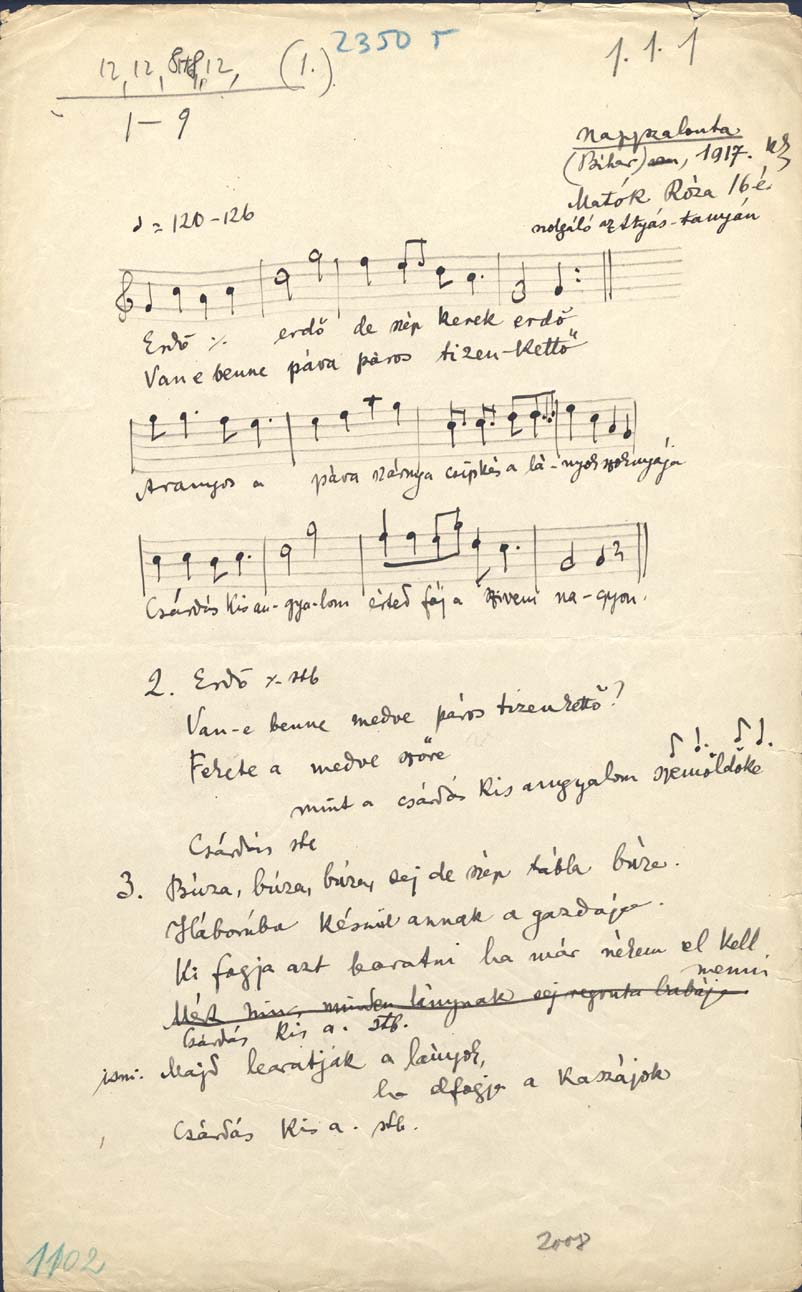 2350 r
12, 12, 8+8, 12, (1.)
1. 1. 1
1 – 9
Nagyszalonta
(Bihar), 1917. KZ
Matók Róza 16 é.
szolgáló az Atyás-tanyán
♩ = 120-126
Erdő ⁒ erdő de szép kerek erdő
Van e benne páva páros tizen-kettő
Aranyos a páva szárnya csipkés a lá-nyok szoknyája
Csárdás kis an-gya-lom érted fáj a szivem na-gyon.
2. Erdő ⁒ stb
Van-e benne medve páros tizenkettő?
Fekete a medve szőre
mint a csárdás kis angyalom szemöldöke
Csárdás stb
3. Búza, búza, búza, sej de szép tábla búza.
Háborúba készül annak a gazdája.
Ki fogja azt learatni ha már nékem el kell
menni
Mért nincs minden lánynak sej regruta babája
Csárdás kis a. stb.
ism. Majd learatják a lányok,
ha elfogja a kaszájok
Csárdás kis a. stb.
1102
2008